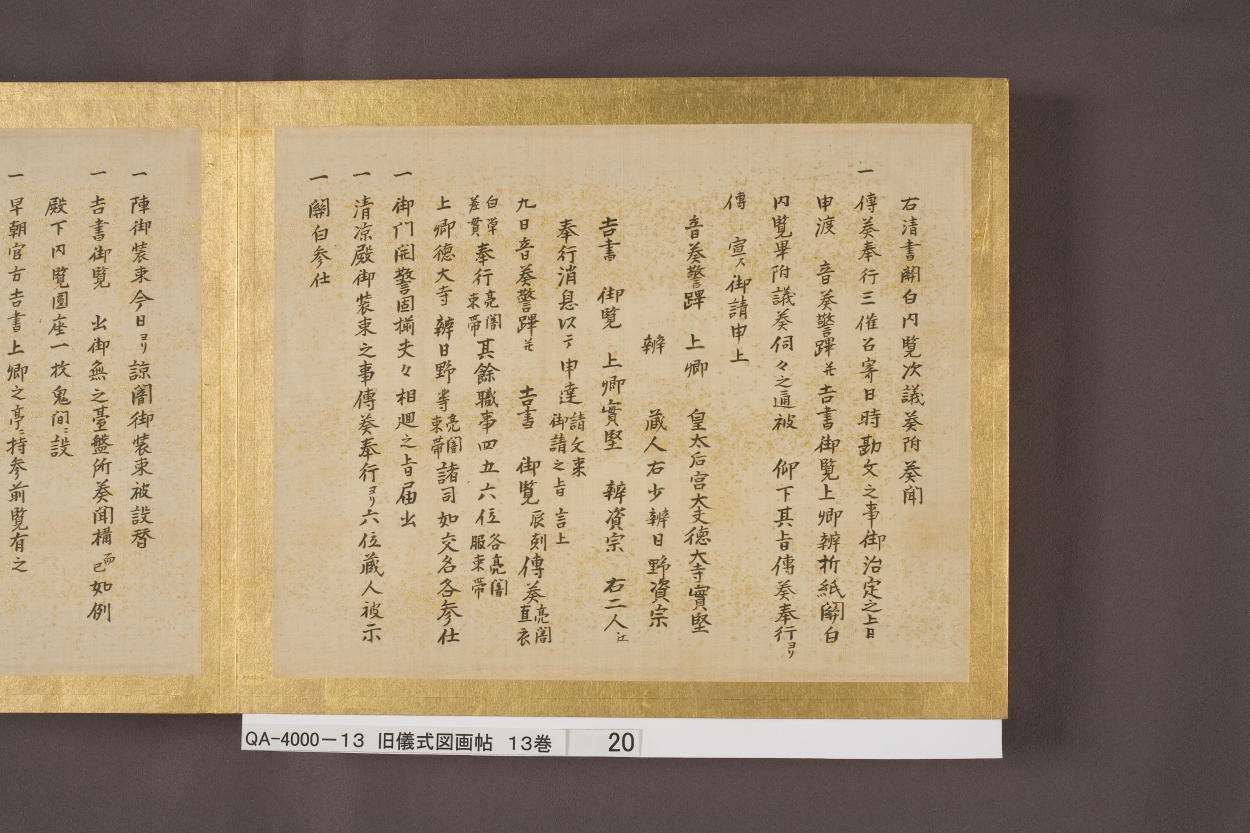 右清書關白内覧次議奏附奏聞
一 傳奏奉行三催召寄日時勘文之事御治定之上旨
申渡 音奏警蹕等吉書御覧上卿辨折紙關白
内覧畢附議奏伺々之通被 仰下其旨傳奏奉行ヨリ
傳 宣ス御請申上
音奏警蹕 上卿 皇太后宮大夫德大寺實堅
辨 蔵人右少辨日野資宗
吉書 御覧 上卿實堅 辨資宗 右二人江
奉行消息以テ申達請文来御請之旨言上
九日音奏警蹕等 吉書 御覧辰刻傳奏亮闇直衣
白単差貫奉行亮闇束帯其餘職事四五六位各亮闇服束帯
上卿德大寺 辨日野等亮闇束帯諸司如交名各参仕
一 御門開警固揃夫々相廻之旨届出
一 清凉殿御装束之事傳奏奉行ヨリ六位蔵人被示
一 關白参仕
一 陣御装束今日ヨリ諒闇御装束被設替
一 吉書御覧 出御無之臺盤所奏聞構而已如例
殿下内覧圓座一枚鬼間ニ設
一 早朝官方吉書上卿之亭ニ持参前覧有之
QA-4000-13 旧儀式図画帖 13巻 20